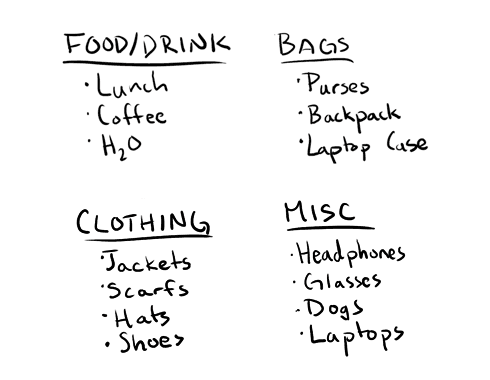 FOOD/DRINK
· Lunch
· Coffee
· H₂O
BAGS
· Purses
· Backpack
· Laptop Case
CLOTHING
· Jackets
· Scarfs
· Hats
· Shoes
MISC
· Headphones
· Glasses
· Dogs
· Laptops